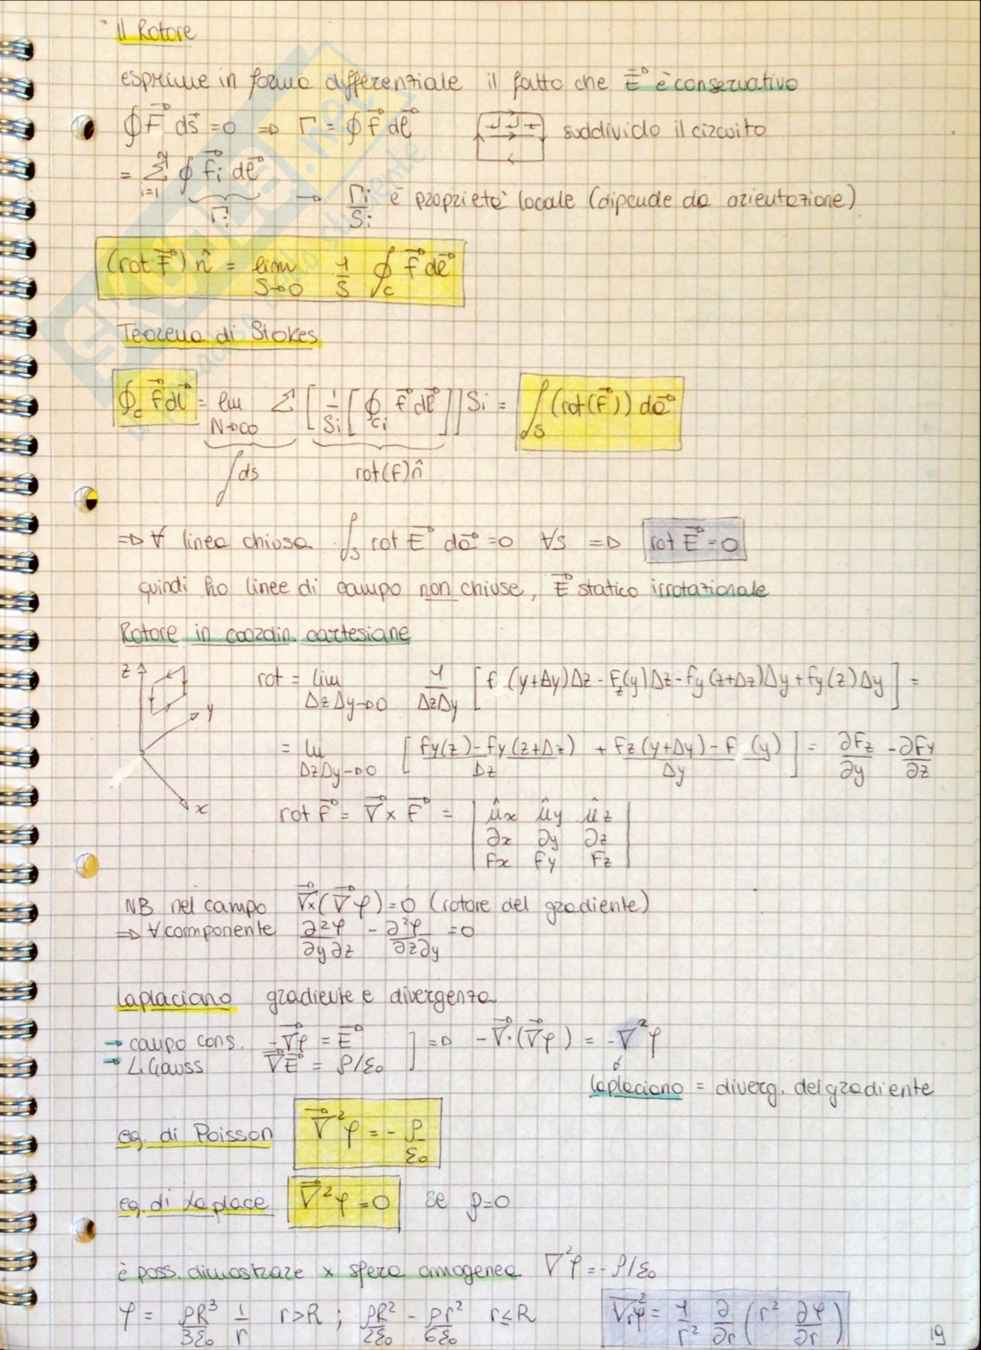 Il Rotore
esprime in forma differenziale il fatto che E⃗ è conservativo
∮ F⃗ ds⃗ = 0 ⇒ Γ = ∮ f⃗ dl⃗ suddivido il circuito
= Σ_{i=1}^{N} ∮ f⃗i dl⃗ → Γi/Si è proprietà locale (dipende da orientazione)
Γi
(rot F⃗) n̂ = lim_{S→0} 1/S ∮_C f⃗ dl⃗
Teorema di Stokes
∮_C f⃗ dl⃗ = lim_{N→∞} Σ [ 1/Si [ ∮_{Ci} f⃗ dl⃗ ] ] Si = ∫_S (rot(F⃗)) da⃗
∫ds rot(f) n̂
⇒ ∀ linea chiusa ∫_S rot E⃗ da⃗ = 0 ∀S ⇒ rot E⃗ = 0
quindi ho linee di campo non chiuse, E⃗ statico irrotazionale
Rotore in coordin. cartesiane
z y x
rot = lim_{ΔzΔy→0} 1/ΔzΔy [ f (y+Δy)Δz - Fz(y)Δz - fy(z+Δz)Δy + fy(z)Δy ] =
= lim_{ΔzΔy→0} [ (fy(z) - fy(z+Δz))/Δz + (Fz(y+Δy) - F (y))/Δy ] = ∂Fz/∂y - ∂Fy/∂z
rot F⃗ = ∇⃗ × F⃗ = | ûx ûy ûz
∂x ∂y ∂z
Fx Fy Fz |
NB nel campo ∇⃗×(∇⃗φ) = 0 (rotore del gradiente)
⇒ ∀ componente ∂²φ/∂y∂z - ∂²φ/∂z∂y = 0
Laplaciano gradiente e divergenza
→ campo cons. -∇⃗φ = E⃗ ] ⇒ -∇⃗·(∇⃗φ) = -∇²φ
→ L. Gauss ∇⃗E⃗ = ρ/ε₀
Laplaciano = diverg. del gradiente
eq. di Poisson ∇⃗²φ = - ρ/ε₀
eq. di Laplace ∇⃗²φ = 0 se ρ=0
è poss. dimostrare x sfera omogenea ∇²φ = -ρ/ε₀
φ = ρR³/3ε₀ 1/r r>R ; ρR²/2ε₀ - ρr²/6ε₀ r≤R ∇r²φ = 1/r² ∂/∂r ( r² ∂φ/∂r )
19